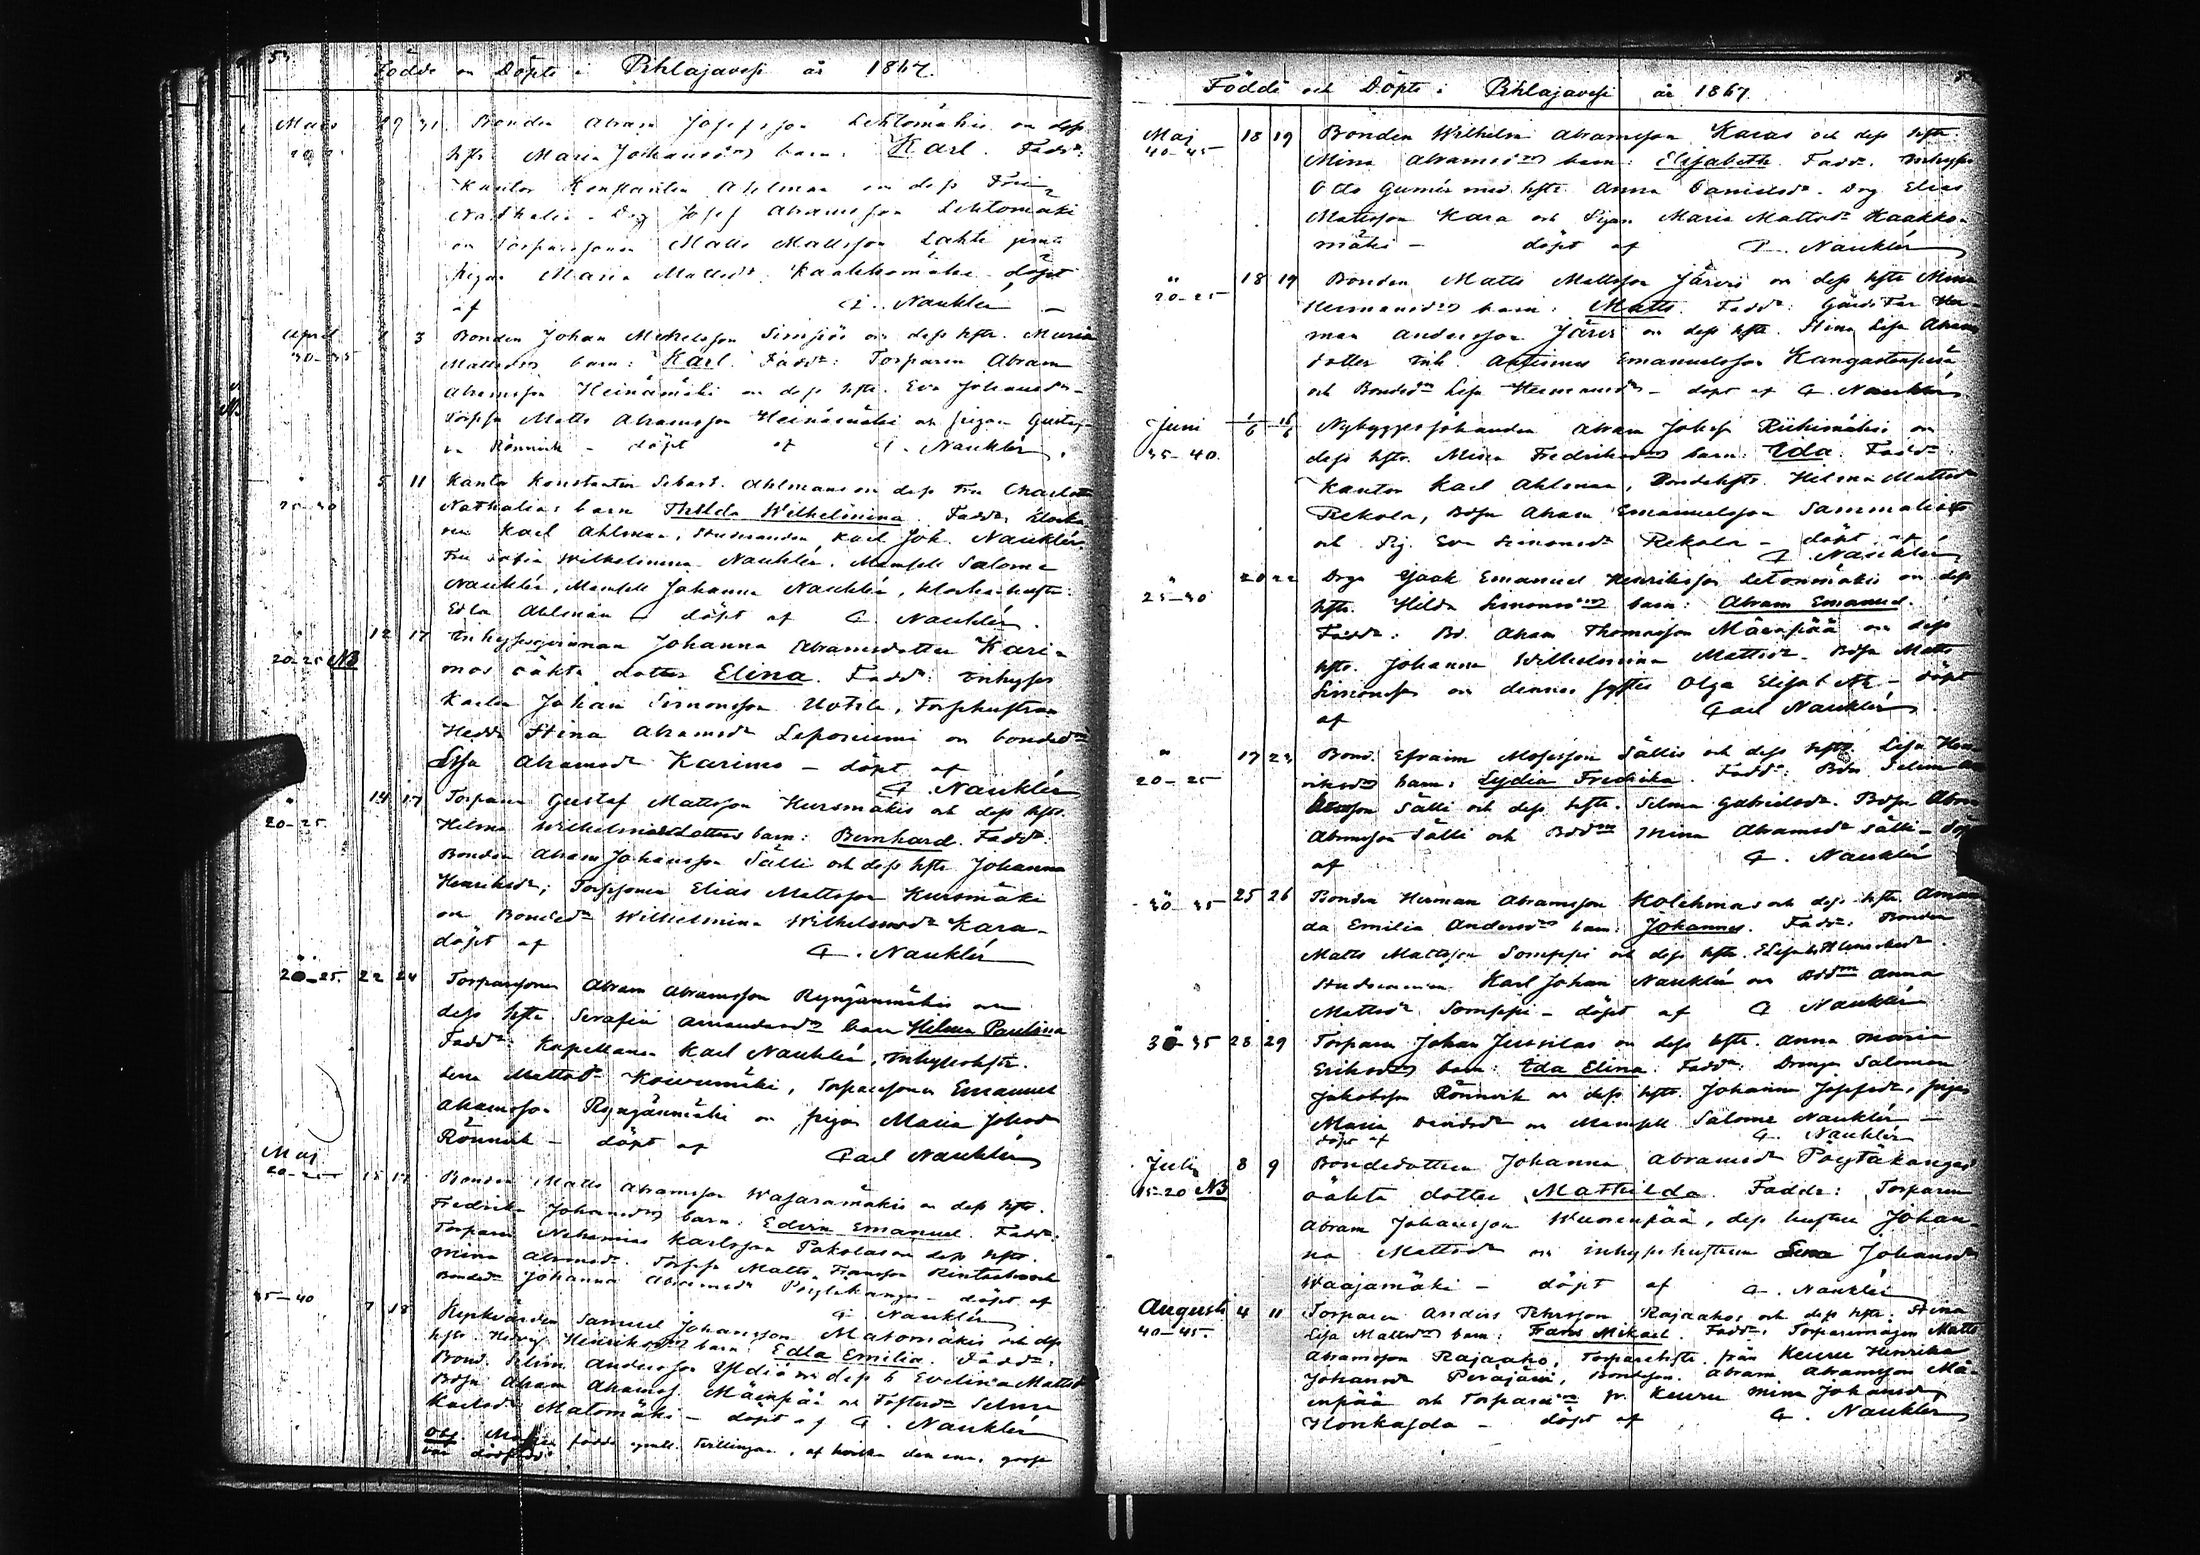 Födde och Döpte i Pihlajavesi år 1867.
Mars 29 31 Bonden Abram Josefsson Lehtomäkis och dess
hstr Maria Johansdrs barn: Karl. Fadd:
Kantor Konstantin Ahlman och dess Fru
Nathalia. Drg Josef Abramsson Lehtomäki
och Torparesonen Matts Mattsson Lahti jemte
pigan Maria Mattsdr Kaakkomäki döpt
af C. Nauklér
April 3 Bonden Johan Michelsson och dess hstr. Maria
30-35 Mattsdrs barn: Karl. Fadd: Torparen Abram
Abramsson Heinämäki och dess hstr. Eva Johansdr
Torpso Matts Abramsson Heinämäki och pigan Gustaf-
va Rönnvik - döpt af C. Nauklér.
" 5 11 Kantor Konstantin Sebast. Ahlmans och dess Fru Charlotta
Nathalias barn Thilda Wilhelmina. Fadd: Klocka-
ren Karl Ahlman, Studeranden Karl Joh. Nauklér,
Fru Sofia Wilhelmina Nauklér. Mamsell Salome
Nauklér, Mamsell Johanna Nauklér, klockarhustr:
Edla Ahlman - döpt af C. Nauklér.
" 12 17 Inhysespigan Johanna Abramsdotter Kari-
20-25 NB mos oäkta dotter Elina. Fadd: Inhyses
Karlen Johan Simonsson Uotila, Torphustrun
Hedda Stina Abramsdr Leponiemi och bondedr
Lisa Abramsdr Karimo - döpt af
C. Nauklér
" 14 17 Torparen Gustaf Mattsson Hursmäkis och dess hstr.
20-25. Helma Wilhelmsdotters barn: Bernhard. Fadd:
Bonden Abram Johansson Sälli och dess hstr Johanna
Henriksdr; Torpsonen Elias Mattsson Hursmäki
och Bondedr Wilhelmina Wilhelmsdr Kara -
döpt af C. Nauklér
"
20-25. 22 24 Torparsonen Abram Abramsson Ryngänmäkis och
dess hstr. Serafia Amandasdrs barn Hilma Paulina
Fadd: Kapellanen Karl Nauklér, Inhyseshstr.
Lena Mattsdr Koivumäki, Torparsonen Emanuel
Abramsson Ryngänmäki och pigan Maria Johsdr
Rönnvik - döpt af
Carl Nauklér
Maj
20-25 15 17 Bonden Matts Abramsson Wasaramäkis och dess hstr.
Fredrika Johansdrs barn: Edvin Emanuel. Fadd:
Torparen Nehemias Karlsson Pakola och dess hstr.
Mina Abramsdr. Torpso Matts Fransson och
Bondedr Johanna Abramsdr Pöytäkangas - döpt af
C. Nauklér
35-40 7 18 Kyrkvärden Samuel Johansson Matomäkis och dess
hstr Hedvig Henriksdrs barn: Edla Emilia. Fadd:
Bond. Selim Andersson Yldiä och dess h Evelina Mattsdr
Bdsn Abram Abramss. Mäenpää och Fosterdr Selma
Karlsdr Matomäki - döpt af C. Nauklér
Obs. födde tvillingar, af hvilka den ene, gosse
var dödfödd
Födde och Döpte i Pihlajavesi år 1867.
Maj 18 19 Bonden Wilhelm Abramsson Karas och dess hstr.
40-45 Mina Abramsdrs barn: Elisabeth. Fadd. Inhyses
Otto Gumér med hstr. Anna Danielsdr. Drg Elias
Mattsson Kara och Pigan Maria Mattsdr Kaakko-
mäki - döpt af C. Nauklér
" 18 19 Bonden Matts Mattsson Järvis och dess hstr Mina
20-25 Hermansdrs barn: Matts. Fadd: Gårdsfar Her-
man Andersson Järvi och dess hstr. Stina Lisa Abrams
dotter inh. Emanuelsson Kangastenperä
och Bondedr Lisa Hermansdr - döpt af C. Nauklér.
Juni 16/6 Nybyggesförhanden Abram Johsson Riihimäkis och
35-40. dess hstr. Mina Fredriksdrs barn: Ida. Fadd:
Kantor Karl Ahlman, Bondehstr. Hilma Mattsdr
Rekola, Bdsn Abram Emanuelsson Sammalisto
och Pig. Eva Simonsdr Rekola - döpt af
C. Nauklér
" 20 22 Drgn Isaak Emanuel Henriksson Letonmäkis och dess
25-30 hstr. Hilda Simonsdrs barn: Abram Emanuel.
Fadd: Bd. Abram Thomasson Mäenpää och dess
hstr. Johanna Wilhelmina Mattsdr. Bdsn Matts
Simonsson och dennes syster Olga Elisabeth - döpt
af Carl Nauklér.
" 17 23 Bond. Efraim Mosesson Sällis och dess hstr. Lisa Hen-
20-25 riksdrs barn: Lydia Fredrika. Fadd: Bdn Selim
Sälli och dess hstr. Selma Gabrielsdr. Bdsn Abram
Abramsson Sälli och Bddrn Mina Abramsdr Sälli - döpt
af C. Nauklér
30-35 25 26 Bonden Herman Abramsson Kolehmas och dess hstr Aman-
da Emilia Andersdrs barn: Johannes. Fadd: Bonden
Matts Mattsson Somppi och dess hstr. Elisabeth Henriksdr.
Studeranden Karl Johan Nauklér och Bddrn Anna
Mattsdr Somppi - döpt af C. Nauklér
30-35 28 29 Torparen Johan Jussilas och dess hstr. Anna Maria
Eriksdrs barn: Ida Elina. Fadd: Drengen Salomon
Jakobsson Rönnvik och dess hstr. Johanna Josefsdr, pigan
Maria och Mamsell Salome Nauklér -
döpt af C. Nauklér
Juli 8 9 Bondedottren Johanna Abramsdr Pöytäkangas
15-20 NB oäkta dotter Mathilda. Faddr: Torparen
Abram Johansson Wuorenpää, dess hustru Johan-
na Mattsdr och inhyseshustrun Lena Johansdr
Waajamäki - döpt af C. Nauklér
Augusti 4 11 Torparen Anders Pehrsson Rajaahos och dess hstr. Stina
40-45. Lisa Mattsdrs barn: Frans Mikael. Fadd: Torparemågen Matts
Abramsson Rajaaho, Torparehstr. från Keuru Henrika
Johansdr Peräjärvi, Bondeson Abram Abramsson Mä-
enpää och Torparedr fr. Keuru Mina Johansdr
Honkasola - döpt af C. Nauklér